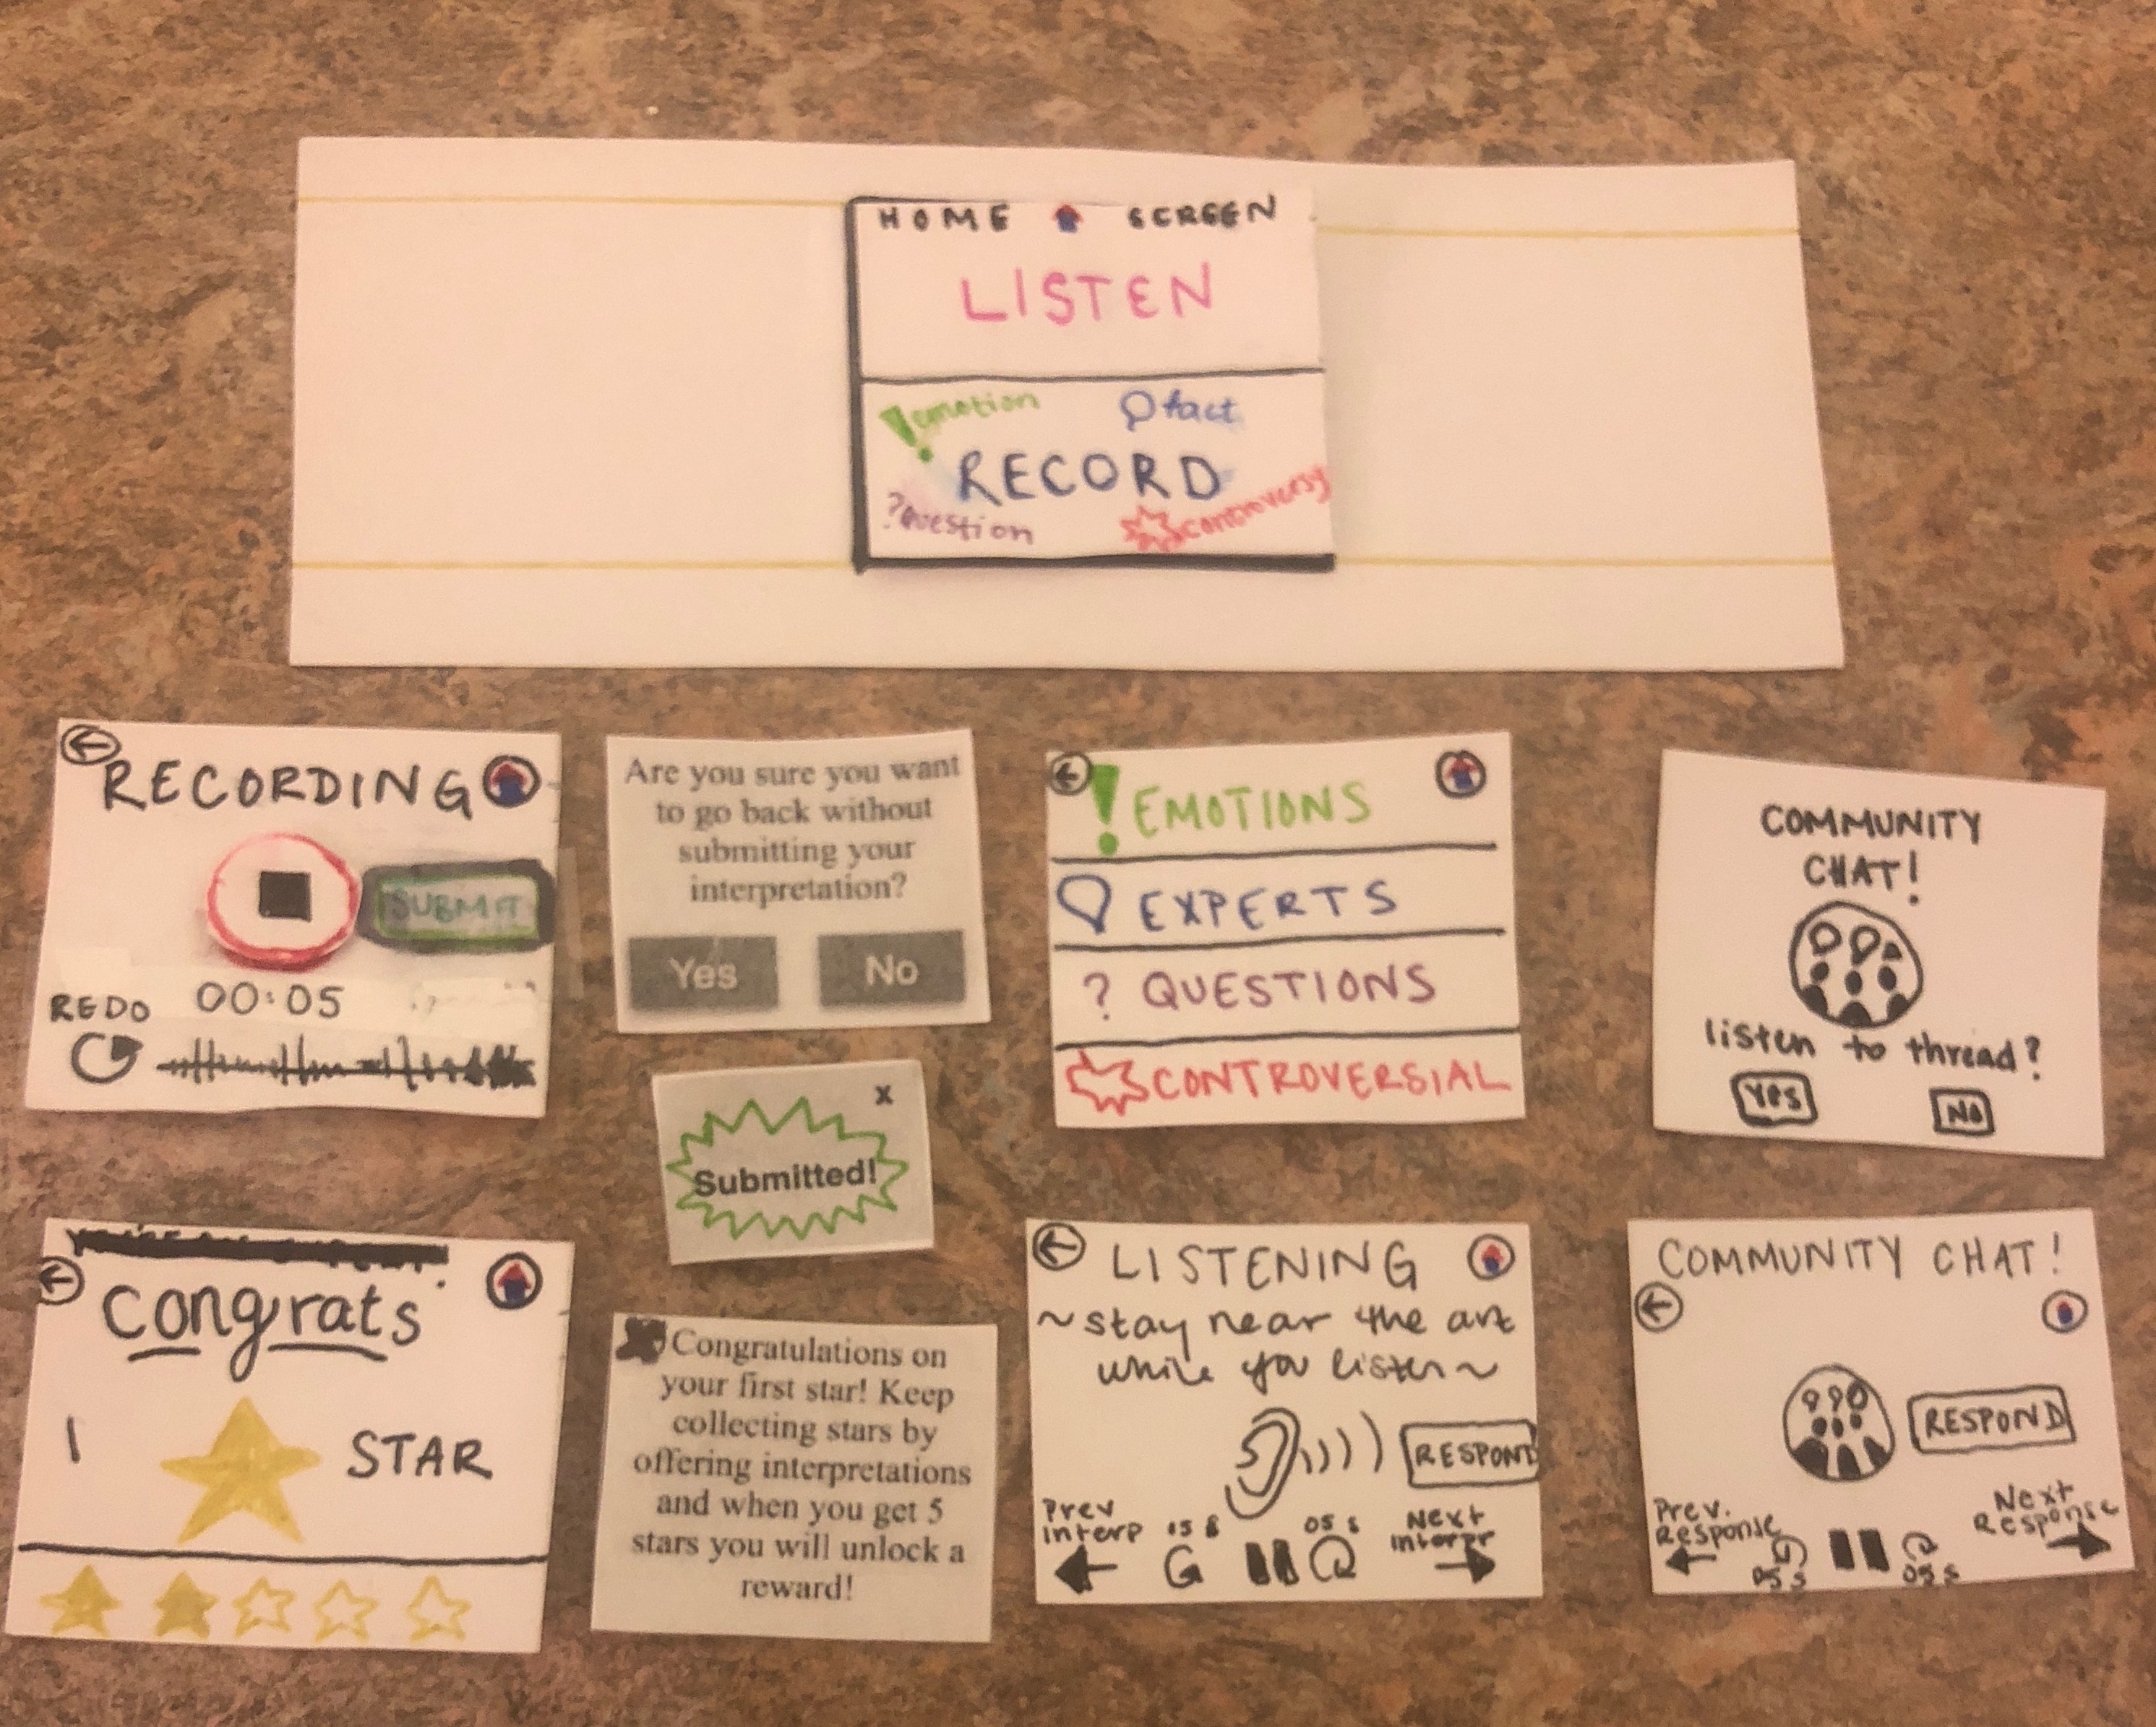 HOME SCREEN
LISTEN
! emotion
fact
RECORD
? Question
controversy
RECORDING
SUBMIT
REDO
00:05
Are you sure you want
to go back without
submitting your
interpretation?
Yes
No
! EMOTIONS
EXPERTS
? QUESTIONS
CONTROVERSIAL
COMMUNITY
CHAT!
listen to thread?
YES
NO
x
Submitted!
congrats
1 STAR
Congratulations on
your first star! Keep
collecting stars by
offering interpretations
and when you get 5
stars you will unlock a
reward!
LISTENING
~stay near the art
while you listen~
RESPOND
Prev
interp
15 s
05 s
Next
interpr
COMMUNITY CHAT!
RESPOND
Prev.
Response
Next
Response
05 s